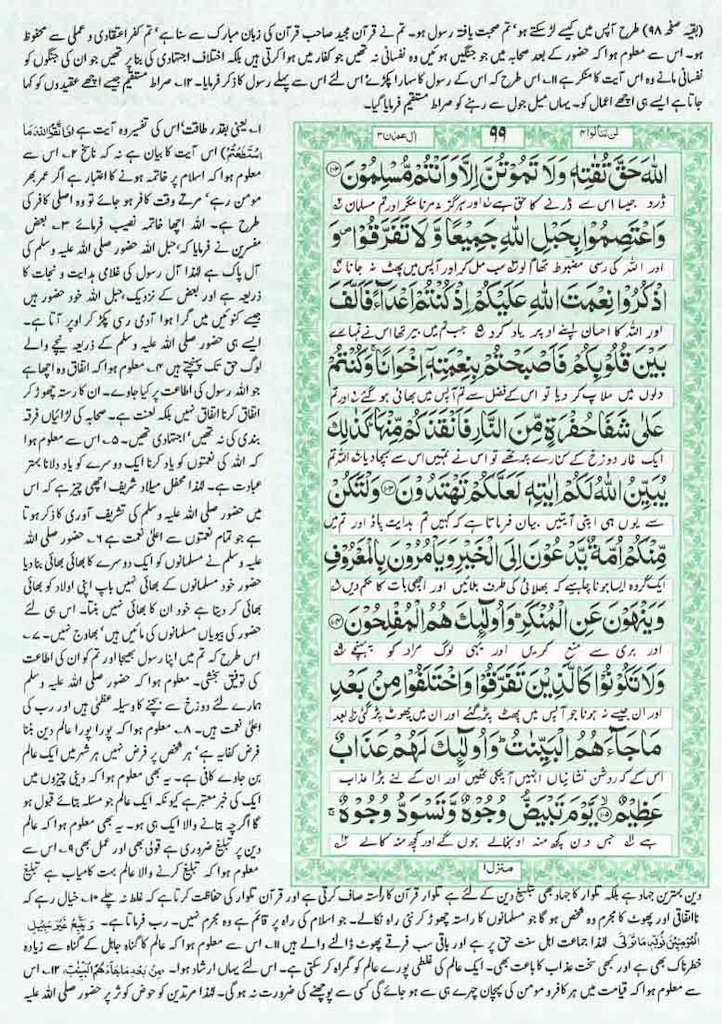 (بقیہ صفحہ ۹۸) طرح آپس میں کیسے لڑ سکتے ہو، تم صحبت یافتہ رسول ہو۔ تم نے قرآن مجید صاحب قرآن کی زبان مبارک سے سنا ہے، تم کفر اعتقادی و عملی سے محفوظ
ہو۔ اس سے معلوم ہوا کہ حضور کے بعد صحابہ میں جو جنگیں ہوئیں وہ نفسانی نہ تھیں جو کفار میں ہوا کرتی ہیں بلکہ اختلاف اجتہادی کی بنا پر تھیں جو ان کی جنگوں کو
نفسانی مانے وہ اس آیت کا منکر ہے ۱۱۔ اس طرح کہ اس کے رسول کا سہارا پکڑے اس لئے اس سے پہلے رسول کا ذکر فرمایا۔ ۱۲۔ صراط مستقیم جیسے اچھے عقیدوں کو کہا
جاتا ہے ایسے ہی اچھے اعمال کو۔ یہاں میل جول سے رہنے کو صراط مستقیم فرمایا گیا۔
لن تنالوا ۴
۹۹
اٰل عمرٰن ۳
اللّٰهَ حَقَّ تُقٰتِهٖ وَلَا تَمُوْتُنَّ اِلَّا وَاَنْتُمْ مُّسْلِمُوْنَ ﴿۱۰۲﴾
ڈرو جیسا اس سے ڈرنے کا حق ہے اور ہرگز نہ مرنا مگر اور تم مسلمان
وَاعْتَصِمُوْا بِحَبْلِ اللّٰهِ جَمِيْعًا وَّلَا تَفَرَّقُوْا ۪ وَ
اور اللہ کی رسی مضبوط تھام لو سب مل کر اور آپس میں پھٹ نہ جانا
اذْكُرُوْا نِعْمَتَ اللّٰهِ عَلَيْكُمْ اِذْ كُنْتُمْ اَعْدَآءً فَاَلَّفَ
اور اللہ کا احسان اپنے اوپر یاد کرو جب تم میں بیر تھا اس نے تمہارے
بَيْنَ قُلُوْبِكُمْ فَاَصْبَحْتُمْ بِنِعْمَتِهٖٓ اِخْوَانًا ۚ وَكُنْتُمْ
دلوں میں ملاپ کر دیا تو اس کے فضل سے تم آپس میں بھائی ہو گئے اور تم
عَلٰى شَفَا حُفْرَةٍ مِّنَ النَّارِ فَاَنْقَذَكُمْ مِّنْهَا ؕ كَذٰلِكَ
ایک غار دوزخ کے کنارے پر تھے تو اس نے تمہیں اس سے بچا دیا اللہ تم
يُبَيِّنُ اللّٰهُ لَكُمْ اٰيٰتِهٖ لَعَلَّكُمْ تَهْتَدُوْنَ ﴿۱۰۳﴾ وَلْتَكُنْ
سے یوں ہی اپنی آیتیں بیان فرماتا ہے کہ کہیں تم ہدایت پاؤ اور تم میں
مِّنْكُمْ اُمَّةٌ يَّدْعُوْنَ اِلَى الْخَيْرِ وَيَاْمُرُوْنَ بِالْمَعْرُوْفِ
ایک گروہ ایسا ہونا چاہیے کہ بھلائی کی طرف بلائیں اور اچھی بات کا حکم دیں
وَيَنْهَوْنَ عَنِ الْمُنْكَرِ ؕ وَاُولٰٓئِكَ هُمُ الْمُفْلِحُوْنَ ﴿۱۰۴﴾
اور بری سے منع کریں اور یہی لوگ مراد کو پہنچے
وَلَا تَكُوْنُوْا كَالَّذِيْنَ تَفَرَّقُوْا وَاخْتَلَفُوْا مِنْۢ بَعْدِ
اور ان جیسے نہ ہونا جو آپس میں پھٹ پڑ گئے اور ان میں پھوٹ پڑ گئی بعد
مَا جَآءَهُمُ الْبَيِّنٰتُ ؕ وَاُولٰٓئِكَ لَهُمْ عَذَابٌ
اس کے کہ روشن نشانیاں انہیں آچکی تھیں اور ان کے لئے بڑا عذاب
عَظِيْمٌ ﴿۱۰۵﴾ يَّوْمَ تَبْيَضُّ وُجُوْهٌ وَّتَسْوَدُّ وُجُوْهٌ ۚ
ہے جس دن کچھ منہ اونجالے ہوں گے اور کچھ منہ کالے
منزل ۱
۱۔ یعنی بقدر طاقت، اس کی تفسیر وہ آیت ہے فَاتَّقُوا اللّٰهَ مَا
اسْتَطَعْتُمْ) اس آیت کا بیان ہے نہ کہ ناسخ ۲۔ اس سے
معلوم ہوا کہ اسلام پر خاتمہ ہونے کا اعتبار ہے اگر عمر بھر
مومن رہے، مرتے وقت کافر ہو جائے تو وہ اصلی کافر کی
طرح ہے۔ اللہ اچھا خاتمہ نصیب فرمائے ۳۔ بعض
مفسرین نے فرمایا کہ، حبل اللہ حضور صلی اللہ علیہ وسلم کی
آل پاک ہے لہٰذا آل رسول کی غلامی ہدایت و نجات کا
ذریعہ ہے اور بعض کے نزدیک، حبل اللہ خود حضور ہیں
جیسے کنوئیں میں گرا ہوا آدمی رسی پکڑ کر اوپر آتا ہے۔
ایسے ہی حضور صلی اللہ علیہ وسلم کے ذریعہ نیچے والے
لوگ حق تک پہنچتے ہیں ۴۔ معلوم ہوا کہ اتفاق وہ اچھا ہے
جو اللہ رسول کی اطاعت پر کیا جاوے۔ ان کا رستہ چھوڑ کر
اتفاق کرنا اتفاق نہیں بلکہ لعنت ہے۔ صحابہ کی لڑائیاں فرقہ
بندی کی نہ تھیں، اجتہادی تھیں۔ ۵۔ اس سے معلوم ہوا
کہ اللہ کی نعمتوں کو یاد کرنا ایک دوسرے کو یاد دلانا بہتر
عبادت ہے۔ لہٰذا محفل میلاد شریف اچھی چیز ہے کہ اس
میں حضور صلی اللہ علیہ وسلم کی تشریف آوری کا ذکر ہوتا
ہے جو تمام نعمتوں سے اعلیٰ نعمت ہے ۶۔ حضور صلی اللہ
علیہ وسلم نے مسلمانوں کو ایک دوسرے کا بھائی بھائی بنا دیا
حضور خود مسلمانوں کے بھائی نہیں باپ اپنی اولاد کو بھائی
بھائی کر دیتا ہے خود ان کا بھائی نہیں بنتا۔ اس ہی لئے
حضور کی بیویاں مسلمانوں کی مائیں ہیں، بھاوج نہیں۔ ۷۔
اس طرح کہ تم میں اپنا رسول بھیجا اور تم کو ان کی اطاعت
کی توفیق بخشی۔ معلوم ہوا کہ حضور صلی اللہ علیہ وسلم
ہمارے لئے دوزخ سے بچنے کا وسیلہ عظمیٰ ہیں اور رب کی
اعلیٰ نعمت ہیں۔ ۸۔ معلوم ہوا کہ پورا پورا عالم دین بننا
فرض کفایہ ہے، ہر شخص پر فرض نہیں ہر شہر میں ایک عالم
بن جاوے کافی ہے۔ یہ بھی معلوم ہوا کہ دینی چیزوں میں
ایک کی خبر معتبر ہے کیونکہ ایک عالم جو مسئلہ بتائے قبول ہو
گا اگرچہ بتانے والا ایک ہی ہو۔ یہ بھی معلوم ہوا کہ عالم
دین پر تبلیغ ضروری ہے قولی بھی اور عملی بھی ۹۔ اس سے
معلوم ہوا کہ تبلیغ کرنے والا عالم بہت کامیاب ہے تبلیغ
دین بہترین جہاد ہے بلکہ تلوار کا جہاد بھی تبلیغ دین کے لئے ہے تلوار قرآن کا راستہ صاف کرتی ہے اور قرآن تلوار کی حفاظت کرتا ہے کہ غلط نہ چلے ۱۰۔ خیال رہے کہ
نااتفاقی اور پھوٹ کا مجرم وہ شخص ہو گا جو مسلمانوں کا راستہ چھوڑ کر نئی راہ نکالے۔ جو اسلام کی راہ پر قائم ہے وہ مجرم نہیں۔ رب فرماتا ہے۔ وَيَتَّبِعْ غَيْرَ سَبِيْلِ
الْمُؤْمِنِيْنَ نُوَلِّهٖ مَا تَوَلّٰى لہٰذا جماعت اہل سنت حق پر ہے اور باقی سب فرقے پھوٹ ڈالنے والے ہیں ۱۱۔ اس سے معلوم ہوا کہ عالم کا گناہ جاہل کے گناہ سے زیادہ
خطرناک بھی ہے اور کبھی سخت عذاب کا باعث بھی۔ ایک عالم کی غلطی پورے عالم کو گمراہ کر سکتی ہے۔ اس لئے یہاں ارشاد ہوا۔ مِنْۢ بَعْدِ مَا جَآءَهُمُ الْبَيِّنٰتُ، ۱۲۔ اس
سے معلوم ہوا کہ قیامت میں ہر کافر و مومن کی پہچان چہرے ہی سے ہو جائے گی کسی سے پوچھنے کی ضرورت نہ ہو گی۔ لہٰذا مرتدین کو حوض کوثر پر حضور صلی اللہ علیہ